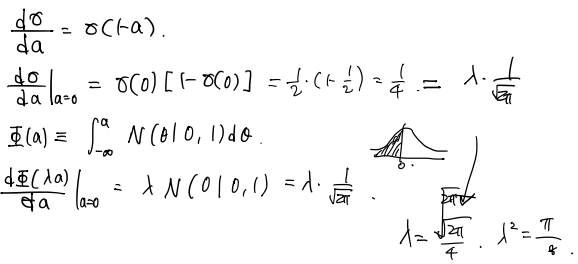 dσ/da = σ(1-a).
dσ/da|a=0 = σ(0)[1-σ(0)] = 1/2·(1-1/2) = 1/4. = λ·1/√2π
Φ(a) ≡ ∫_{-∞}^{a} N(θ|0,1)dθ.
0.
dΦ(λa)/da|a=0 = λ N(0|0,1) = λ·1/√2π.
λ = √2π/4. λ² = π/8.